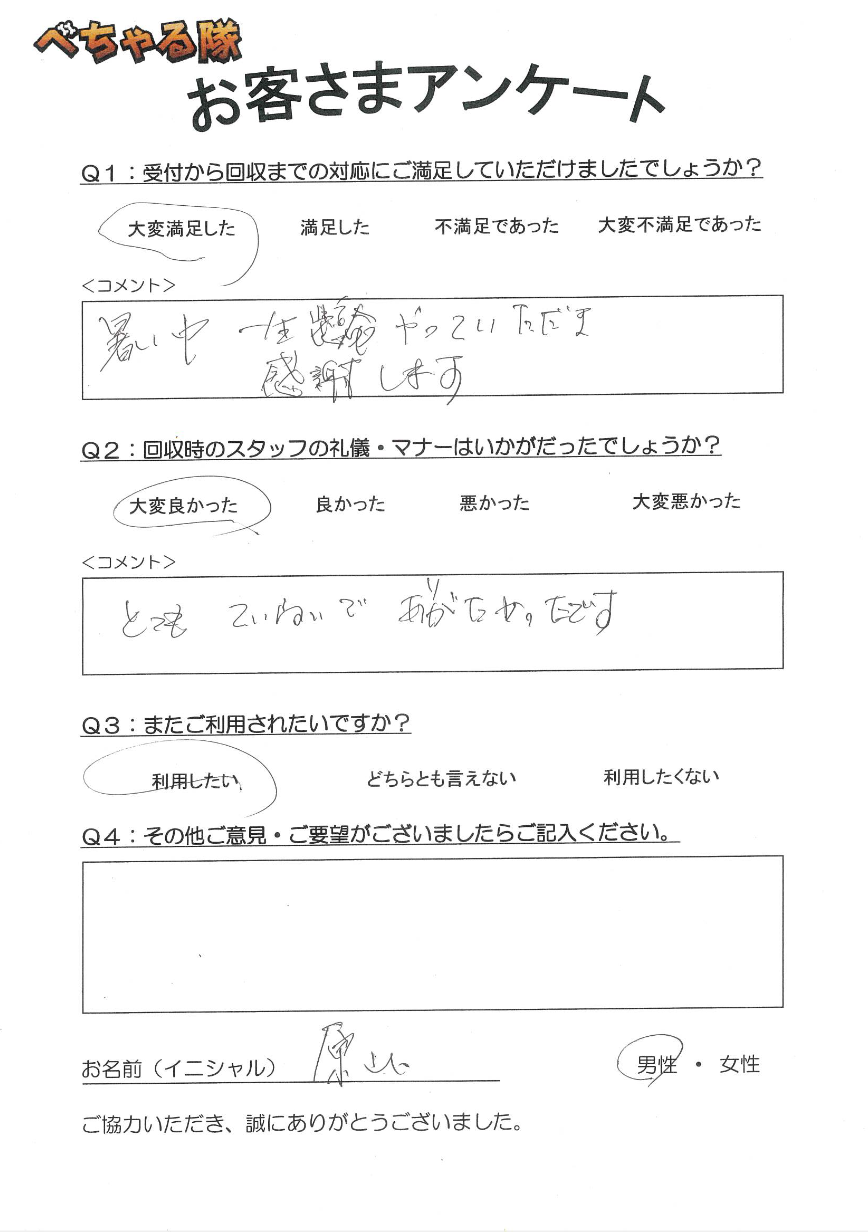 べちゃる隊
お客さまアンケート
Q1：受付から回収までの対応にご満足していただけましたでしょうか？
大変満足した 満足した 不満足であった 大変不満足であった
＜コメント＞
暑い中 一生懸 やっていただき
感謝します
Q2：回収時のスタッフの礼儀・マナーはいかがだったでしょうか？
大変良かった 良かった 悪かった 大変悪かった
＜コメント＞
とても ていねいで ありがたかったです
Q3：またご利用されたいですか？
利用したい どちらとも言えない 利用したくない
Q4：その他ご意見・ご要望がございましたらご記入ください。
お名前（イニシャル） 原
男性 ・ 女性
ご協力いただき、誠にありがとうございました。